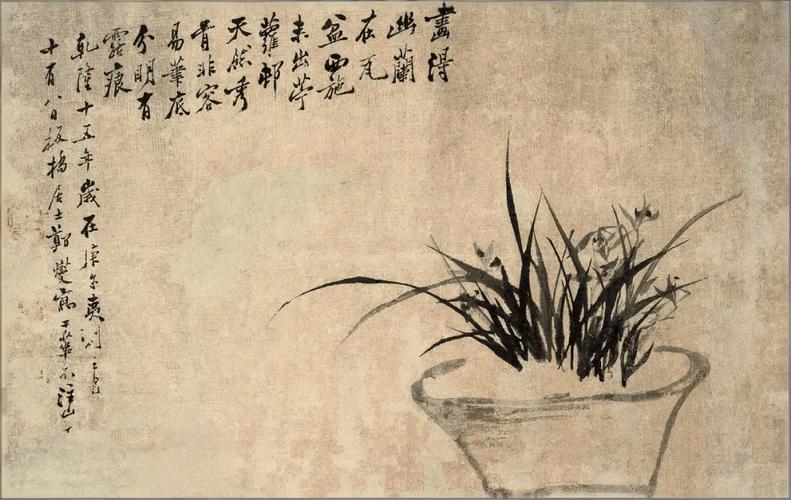 畫得
幽蘭
在瓦
盆西施
未出苧
蘿邨
天然秀
骨非容
易筆底
分明有
露痕
乾隆十五年歲在庚
十有八日板橋居士鄭燮寫